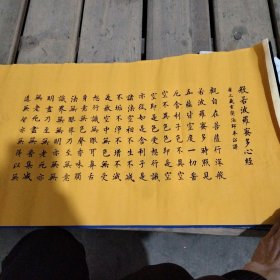 般若波羅蜜多心經
唐三藏玄奘法師奉詔譯
觀自在菩薩行深般
若波羅蜜多時照見
五蘊皆空度一切苦
厄舍利子色不異空
空不異色色即是空
空即是色受想行識
亦復如是舍利子是
諸法空相不生不滅
不垢不淨不增不減
是故空中無色無受
想行識無眼耳鼻舌
身意無色聲香味觸
法無眼界乃至無意
識界無無明亦無無
明盡乃至無老死亦
無老死盡無苦集滅
道無智亦無得以無